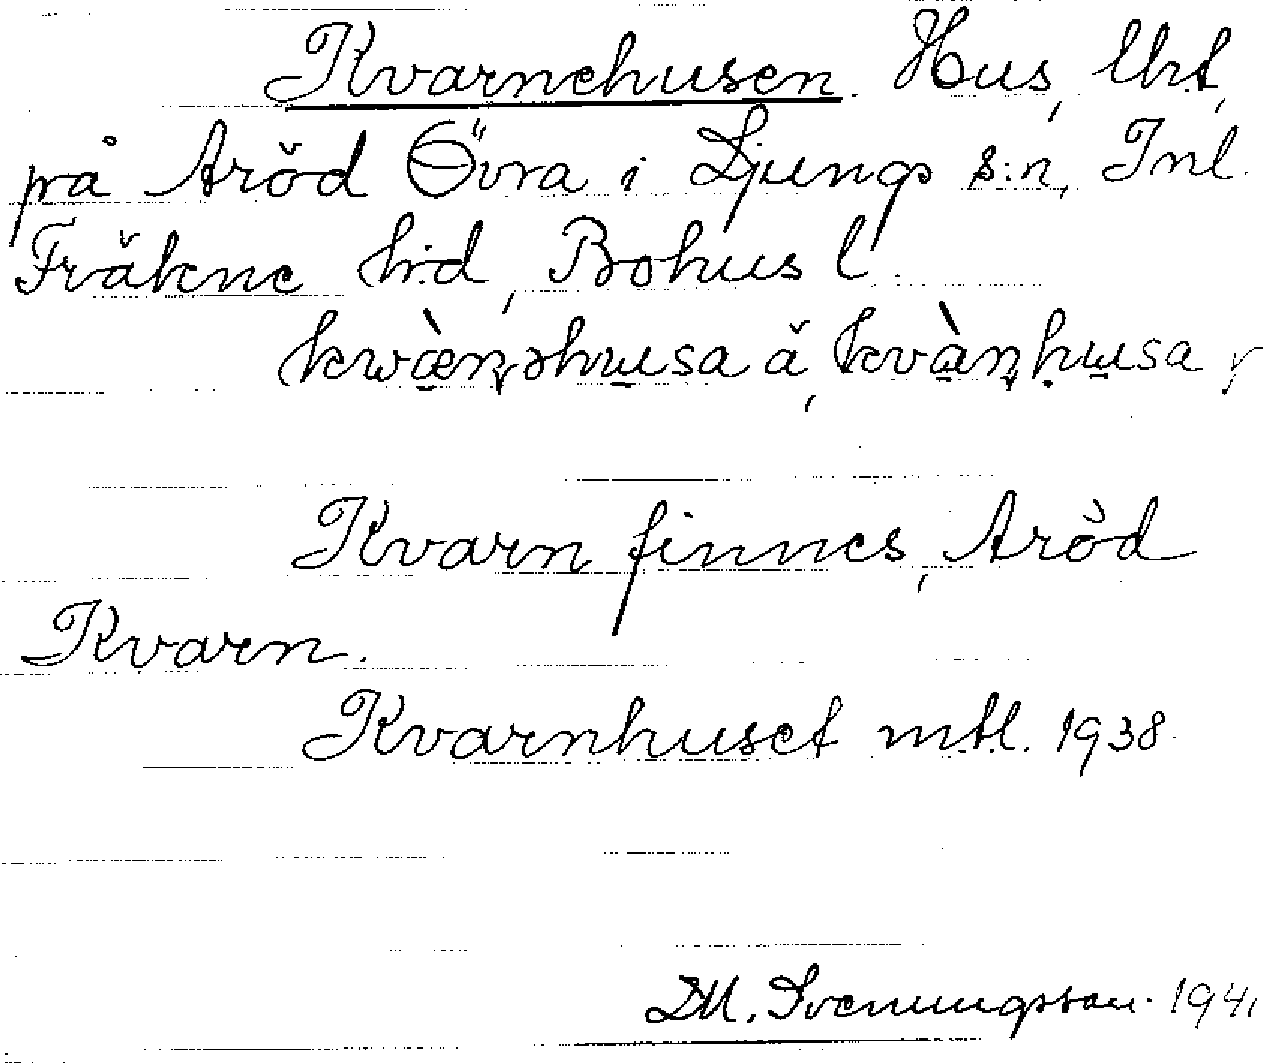 Kvarnehusen. Hus, lht,
på Aröd Övra i Ljungs s:n, Inl.
Fräkne h:d, Bohus l.
kwæ̀nəhusa å kvànhusa
Kvarn finnes, Aröd
Kvarn.
Kvarnhuset mtl. 1938
D.M. Svenungsson. 1941